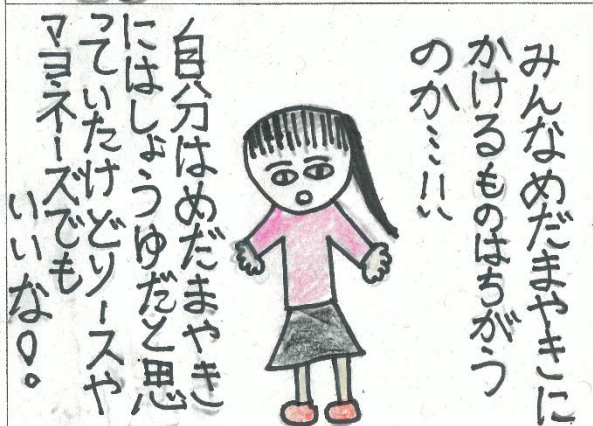 みんなめだまやきに
かけるものはちがう
のか…!!
自分はめだまやき
にはしょうゆだと思
っていたけどソースや
マヨネーズでも
いいな!。